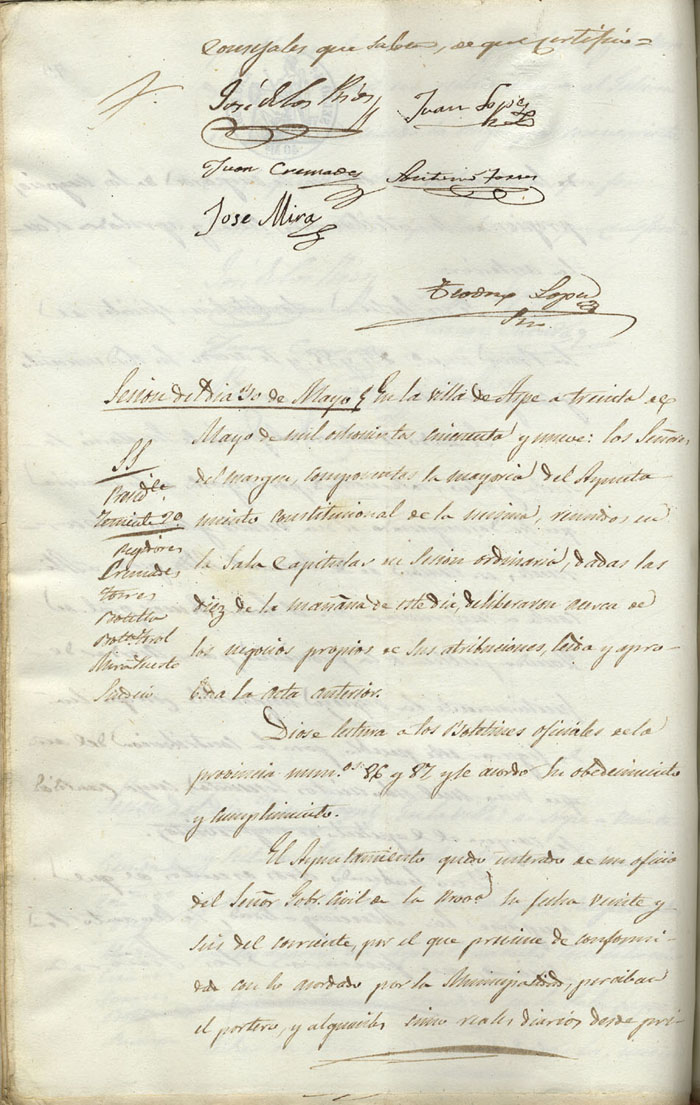 Concejales que saben, de que certifico=
José de los Ríos
Juan Lopez
Juan Cremades
Antonio Torres
Jose Mira
Teodoro Lopez
Srio.
Sesion del dia 30 de Mayo
En la villa de Aspe a treinta de
Mayo de mil ochocientos cincuenta y nueve: los Señores
del margen, componentes la mayoria del Ayunta
miento Constitucional de la misma, reunidos en
la Sala Capitular en Sesion ordinaria, dadas las
diez de la mañana de este dia, deliberaron acerca de
los negocios propios de sus atribuciones, leida y apro-
bada la acta anterior.
SS
Presid.te
Teniente 2º
Regidores
Cremades
Torres
Botella
Mira
Sindico
Diose lectura a los Boletines oficiales de la
provincia num.os 86 y 87 y se acordó su obedecimiento
y cumplimiento.
El Ayuntamiento quedó enterado de un oficio
del Señor Gob.r Civil de la Prov.a su fecha veinte y
seis del corriente, por el que previene de conformi-
dad con lo acordado por la Municipalidad, perciban
el portero, y alguaciles cinco reales diarios desde pri-